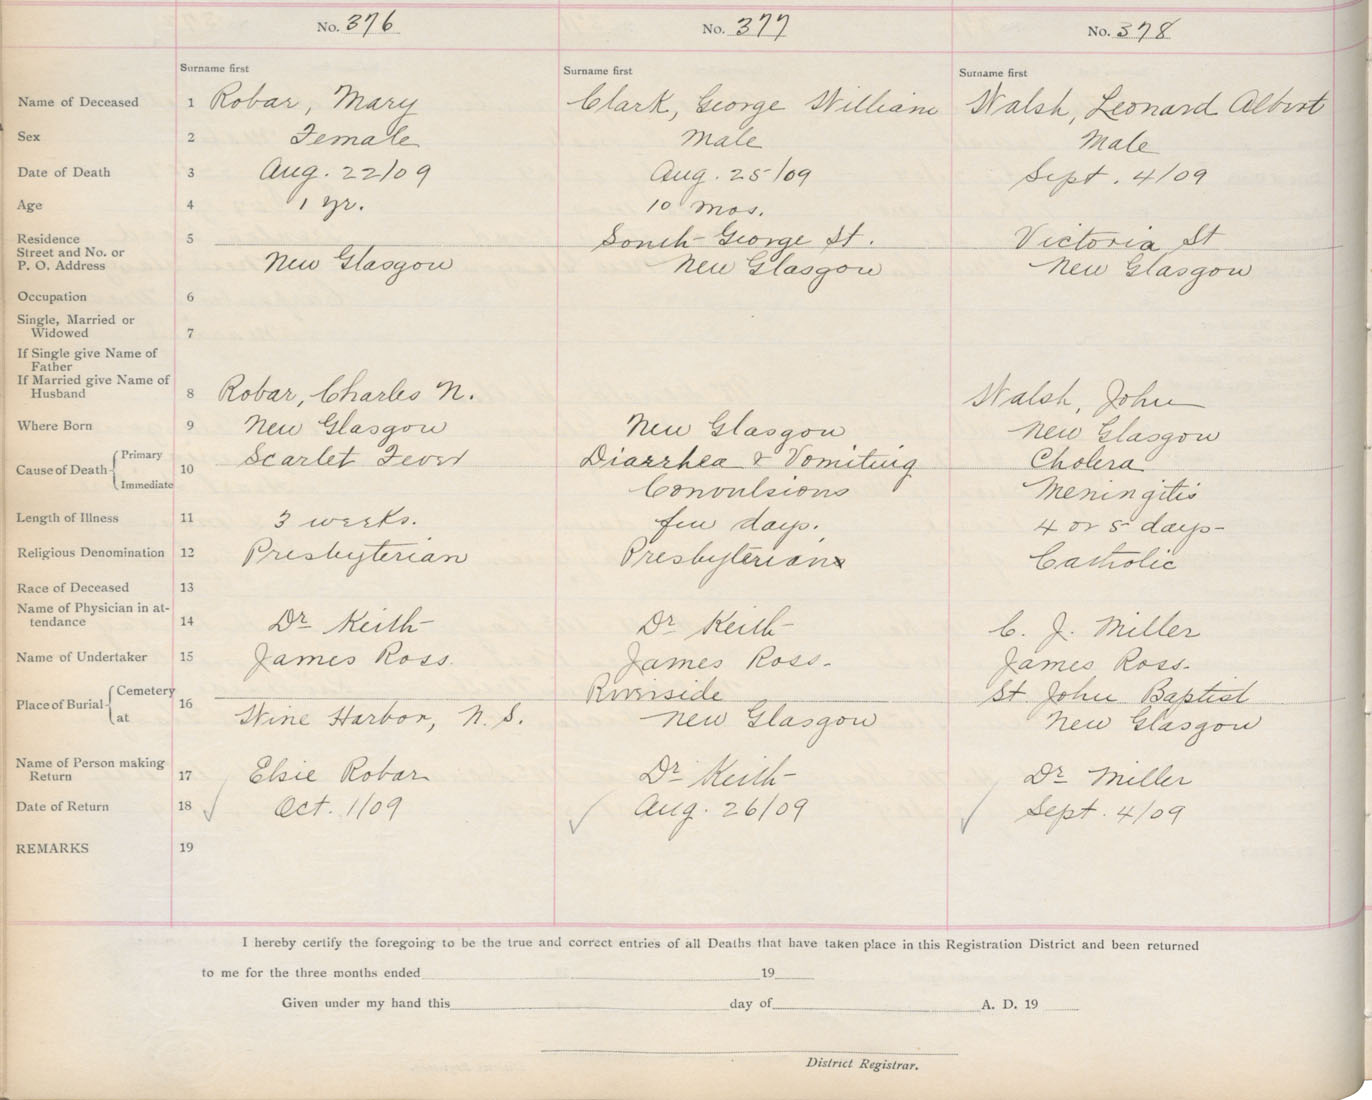 No. 376 No. 377 No. 378
Surname first Surname first Surname first
Name of Deceased 1 Robar, Mary Clark, George William Walsh, Leonard Albert
Sex 2 Female Male Male
Date of Death 3 Aug. 22/09 Aug. 25/09 Sept. 4/09
Age 4 1 yr. 10 mos.
Residence 5 South George St. Victoria St
Street and No. or
P. O. Address New Glasgow New Glasgow New Glasgow
Occupation 6
Single, Married or
Widowed 7
If Single give Name of
Father
If Married give Name of
Husband 8 Robar, Charles N. Walsh, John
Where Born 9 New Glasgow New Glasgow New Glasgow
Primary Scarlet Fever Diarrhea & Vomiting Cholera
Cause of Death 10
Immediate Convulsions Meningitis
Length of Illness 11 3 weeks. few days. 4 or 5 days-
Religious Denomination 12 Presbyterian Presbyterian Catholic
Race of Deceased 13
Name of Physician in at-
tendance 14 Dr Keith Dr Keith C. J. Miller
Name of Undertaker 15 James Ross. James Ross- James Ross-
Cemetery Riverside St. John Baptist
Place of Burial 16
at Wine Harbor, N. S. New Glasgow New Glasgow
Name of Person making
Return 17 Elsie Robar Dr Keith Dr Miller
Date of Return 18 Oct. 1/09 Aug. 26/09 Sept. 4/09
REMARKS 19
I hereby certify the foregoing to be the true and correct entries of all Deaths that have taken place in this Registration District and been returned
to me for the three months ended 19
Given under my hand this day of A. D. 19
District Registrar.